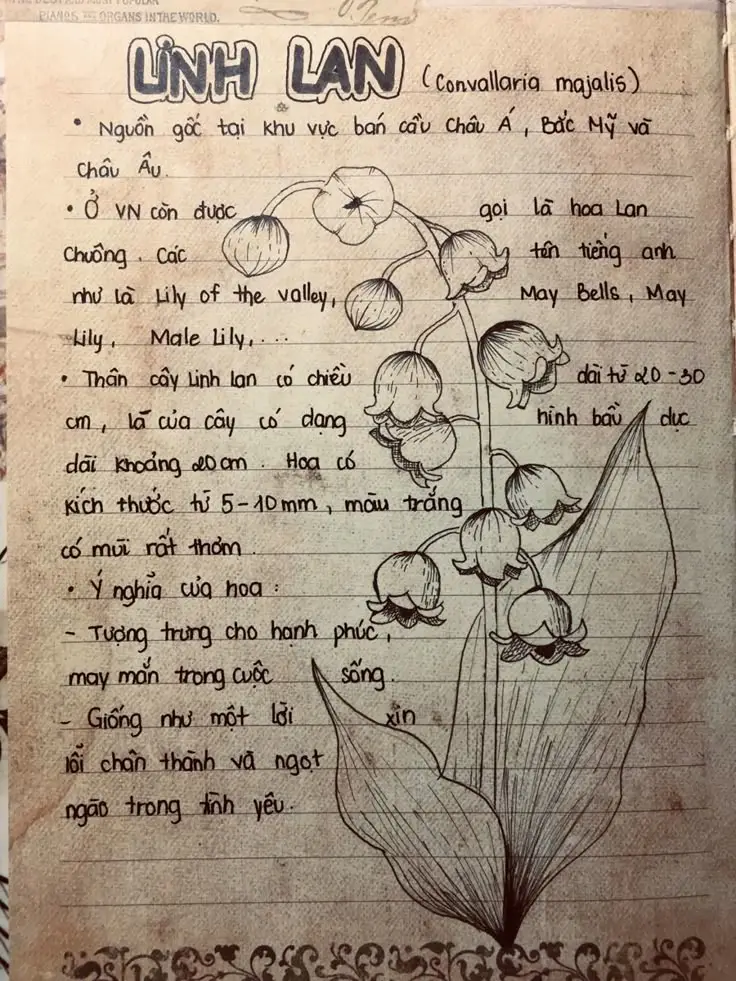 PIANOS AND ORGANS IN THE WORLD.
LINH LAN (Convallaria majalis)
• Nguồn gốc tại khu vực bán cầu Châu Á, Bắc Mỹ và
Châu Âu.
• Ở VN còn được gọi là hoa Lan
Chuông. Các tên tiếng anh
như là Lily of the valley, May Bells, May
Lily, Male Lily,...
• Thân cây Linh lan có chiều dài từ 20-30
cm, lá của cây có dạng hình bầu dục
dài khoảng 20cm. Hoa có
kích thước từ 5-10mm, màu trắng
có mùi rất thơm.
• Ý nghĩa của hoa:
- Tượng trưng cho hạnh phúc,
may mắn trong cuộc sống.
- Giống như một lời xin
lỗi chân thành và ngọt
ngào trong tình yêu.